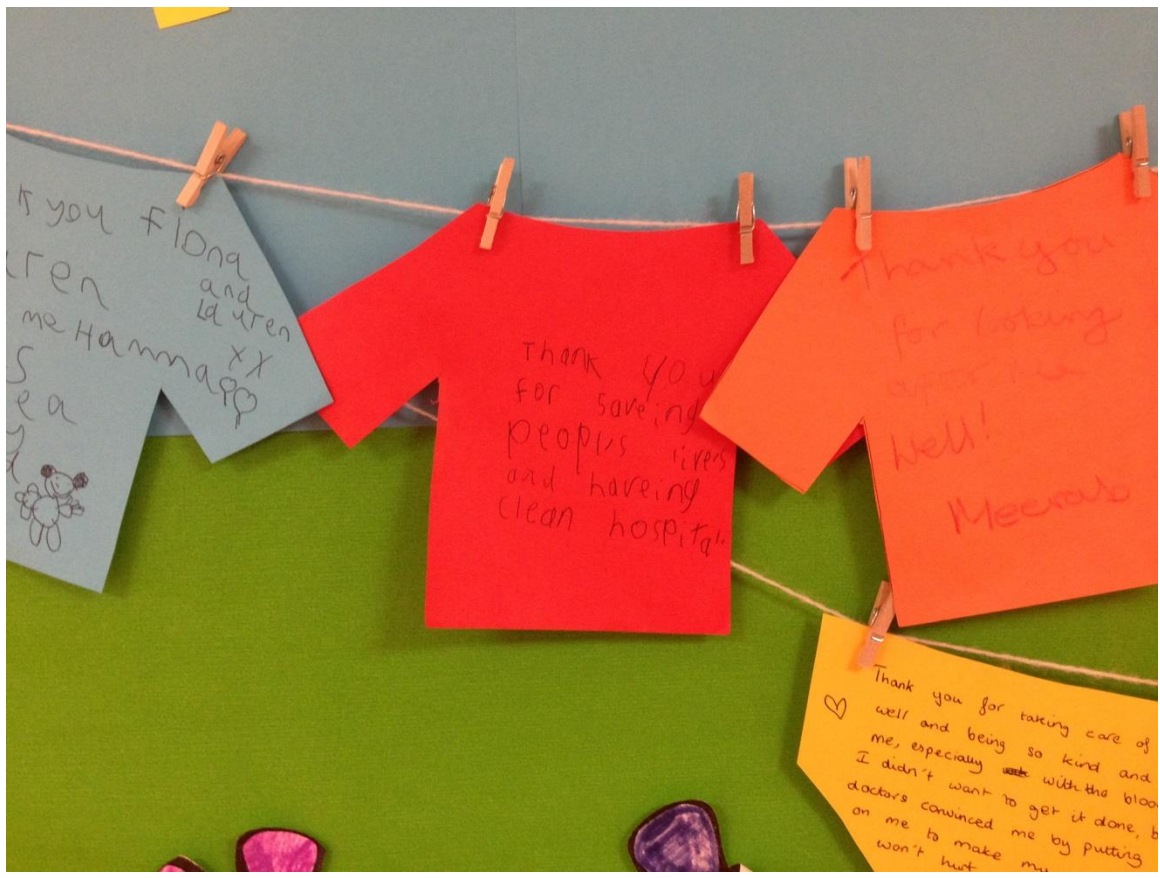 you Fiona
and
Lauren
me Hanna
xx
Thank you
for saveing
people's lives
and haveing
clean hospitals
Thank you
for looking
after me
Well!
Meerab
Thank you for taking care of
well and being so kind and
me, especially with the bloo
I didn't want to get it done, b
doctors convinced me by putting
on me to make my
won't hurt